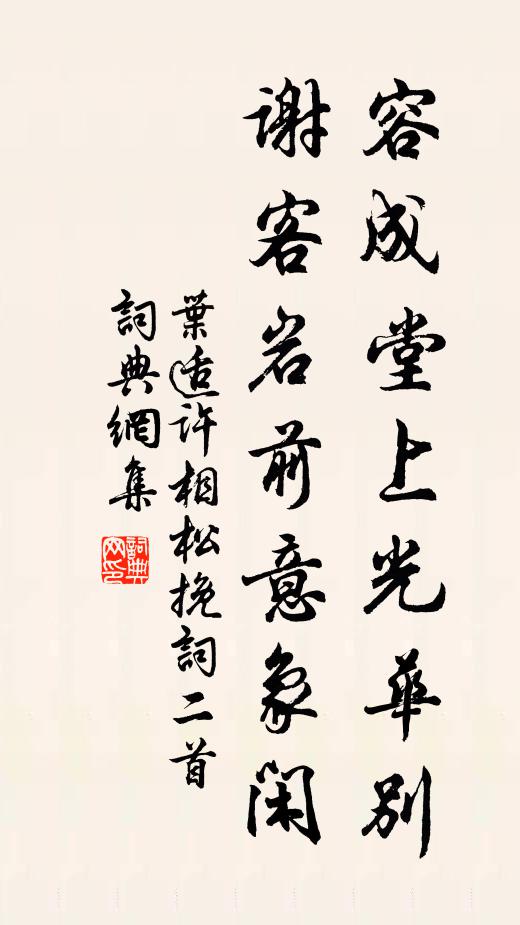 容成堂上光華別
謝客岩前意象閑
葉适許相松挽詞二首
詞典網集
詞典網印